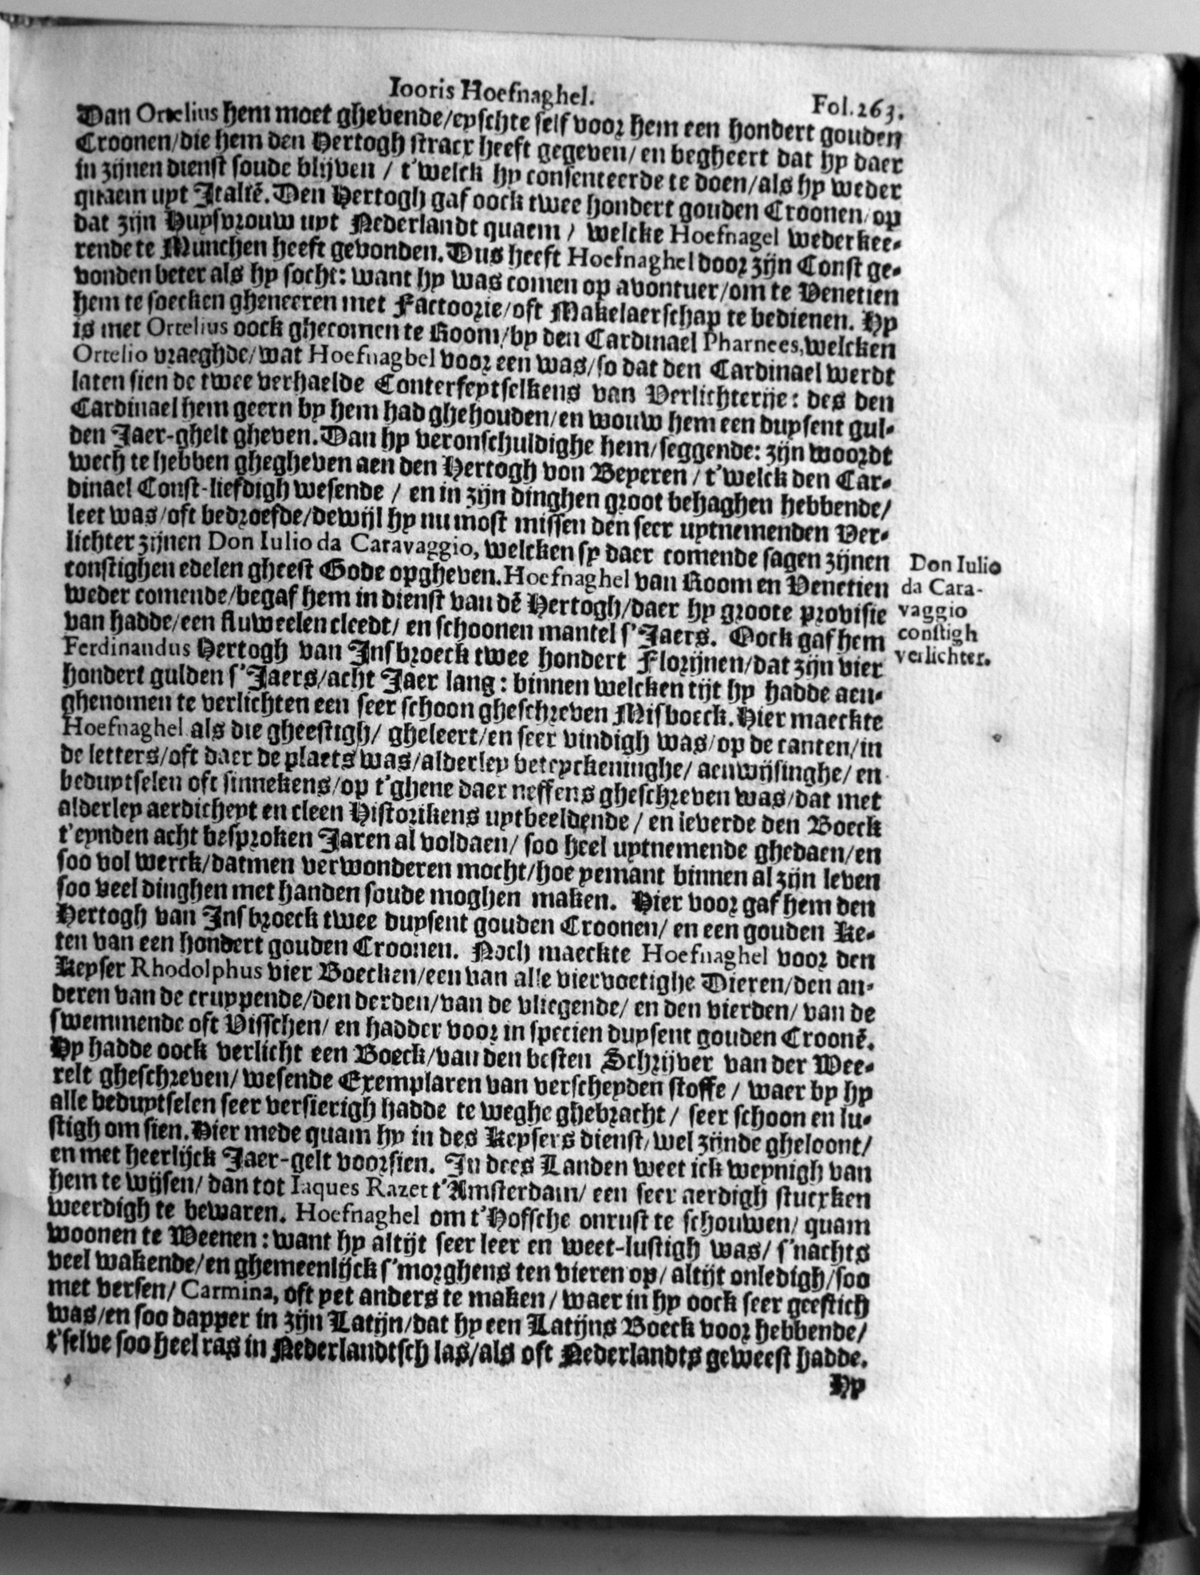 Iooris Hoefnaghel. Fol.263.
Dan Ortelius hem moet ghevende/eyschte self voor hem een hondert gouden
Croonen/die hem den Hertogh stracx heeft gegeven/en begheert dat hy daer
in zijnen dienst soude blijven / t'welck hy consenteerde te doen/als hy weder
quaem uyt Italiē. Den Hertogh gaf oock twee hondert gouden Croonen/op
dat zijn Huysvrouw uyt Nederlandt quaem / welcke Hoefnagel wederkee-
rende te Munchen heeft gevonden. Dus heeft Hoefnaghel door zijn Const ge-
vonden beter als hy socht: want hy was comen op avontuer/om te Venetien
hem te soecken gheneeren met Factoorie/oft Makelaerschap te bedienen. Hy
is met Ortelius oock ghecomen te Room/by den Cardinael Pharnees, welcken
Ortelio vraeghde/wat Hoefnaghel voor een was/so dat den Cardinael werdt
laten sien de twee verhaelde Conterfeytselkens van Verlichterije: des den
Cardinael hem geern by hem had ghehouden/en wouw hem een duysent gul-
den Jaer-ghelt gheven. Dan hy veronschuldighe hem/seggende: zijn woordt
wech te hebben ghegheven aen den Hertogh von Beyeren / t'welck den Car-
dinael Const-liefdigh wesende / en in zijn dinghen groot behaghen hebbende/
leet was/oft bedroefde/dewijl hy nu most missen den seer uytnemenden Ver-
lichter zijnen Don Iulio da Caravaggio, welcken sy daer comende sagen zijnen
constighen edelen gheest Gode opgheven. Hoefnaghel van Room en Venetien
weder comende/begaf hem in dienst van dē Hertogh/daer hy groote provisie
van hadde/een fluweelen cleedt/ en schoonen mantel s'Jaers. Oock gaf hem
Ferdinandus Hertogh van Insbroeck twee hondert Florijnen/dat zijn vier
hondert gulden s'Jaers/acht Jaer lang: binnen welcken tijt hy hadde aen-
ghenomen te verlichten een seer schoon gheschreven Misboeck. Hier maeckte
Hoefnaghel als die gheestigh/ gheleert/en seer vindigh was/op de canten/in
de letters/oft daer de plaets was/alderley beteyckeninghe/ aenwijsinghe/ en
beduytselen oft sinnekens/op t'ghene daer neffens gheschreven was/dat met
alderley aerdicheyt en cleen Historikens uytbeeldende / en leverde den Boeck
t'eynden acht besproken Jaren al voldaen/ soo heel uytnemende ghedaen/en
soo vol werck/datmen verwonderen mocht/hoe yemant binnen al zijn leven
soo veel dinghen met handen soude moghen maken. Hier voor gaf hem den
Hertogh van Insbroeck twee duysent gouden Croonen/ en een gouden Ke-
ten van een hondert gouden Croonen. Noch maeckte Hoefnaghel voor den
Keyser Rhodolphus vier Boecken/een van alle viervoetighe Dieren/den an-
deren van de cruypende/den derden/van de vliegende/ en den vierden/ van de
swemmende oft Visschen/ en hadder voor in specien duysent gouden Croonē.
Hy hadde oock verlicht een Boeck/van den besten Schrijver van der Wee-
relt gheschreven/ wesende Exemplaren van verscheyden stoffe / waer by hy
alle beduytselen seer versierigh hadde te weghe ghebracht / seer schoon en lu-
stigh om sien. Hier mede quam hy in des Keysers dienst/ wel zijnde gheloont/
en met heerlijck Jaer-gelt voorsien. In dees Landen weet ick weynigh van
hem te wijsen/ dan tot Iaques Razet t'Amsterdam/ een seer aerdigh stucxken
weerdigh te bewaren. Hoefnaghel om t'Hofsche onrust te schouwen/ quam
woonen te Weenen: want hy altijt seer leer en weet-lustigh was/ s'nachts
veel wakende/en ghemeenlijck s'morghens ten vieren op/ altijt onledigh/soo
met versen/ Carmina, oft yet anders te maken/ waer in hy oock seer geestich
was/en soo dapper in zijn Latijn/dat hy een Latijns Boeck voor hebbende/
t'selve soo heel ras in Nederlandtsch las/als oft Nederlandts geweest hadde.
Hy
Don Iulio
da Cara-
vaggio
constigh
verlichter.